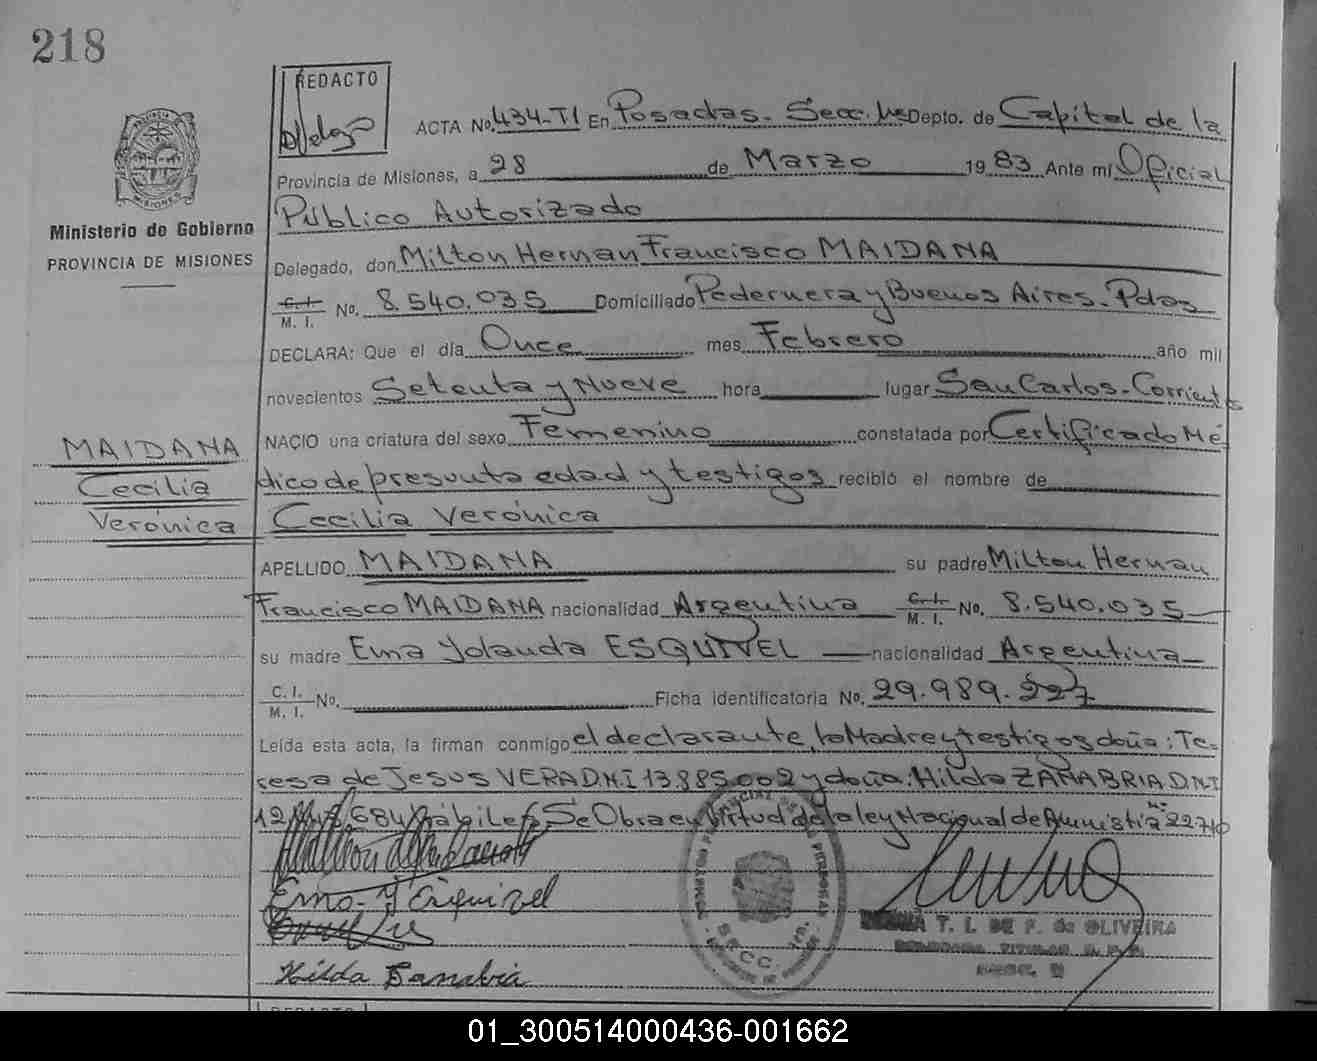 218
REDACTO
ACTA No. 434-T1 En Posadas. Secc. 1ra Depto. de Capital de la
Provincia de Misiones, a 28 de Marzo 1983 Ante mí Oficial
Público Autorizado
Ministerio de Gobierno
PROVINCIA DE MISIONES
Delegado, don Milton Hernan Francisco MAIDANA
C. I. M. I. No. 8.540.035 Domiciliado Pedernera y Buenos Aires. Pdas
DECLARA: Que el día Once mes Febrero año mil
novecientos Setenta y Nueve hora lugar San Carlos - Corrientes
NACIO una criatura del sexo Femenino constatada por Certificado Mé
MAIDANA
Cecilia
Verónica
dico de presunta edad y testigos recibió el nombre de
Cecilia Verónica
APELLIDO MAIDANA su padre Milton Hernan
Francisco MAIDANA nacionalidad Argentina C. I. M. I. No. 8.540.035
su madre Ema Yolanda ESQUIVEL nacionalidad Argentina
C. I. M. I. No. Ficha identificatoria No. 29.989.227
Leída esta acta, la firman conmigo el declarante, la Madre y testigos doña: Te-
resa de Jesus VERA D.N.I 13.885.002 y doña: Hilda ZANABRIA D.N.I
12 684 hábiles Se Obra en Virtud de la ley Nacional de Amnistía Nº 22710
Ema Y Esquivel
Hilda Sanabria
T. I. DE F. de OLIVEIRA
SECC. 1a.
REDACTO
01_300514000436-001662